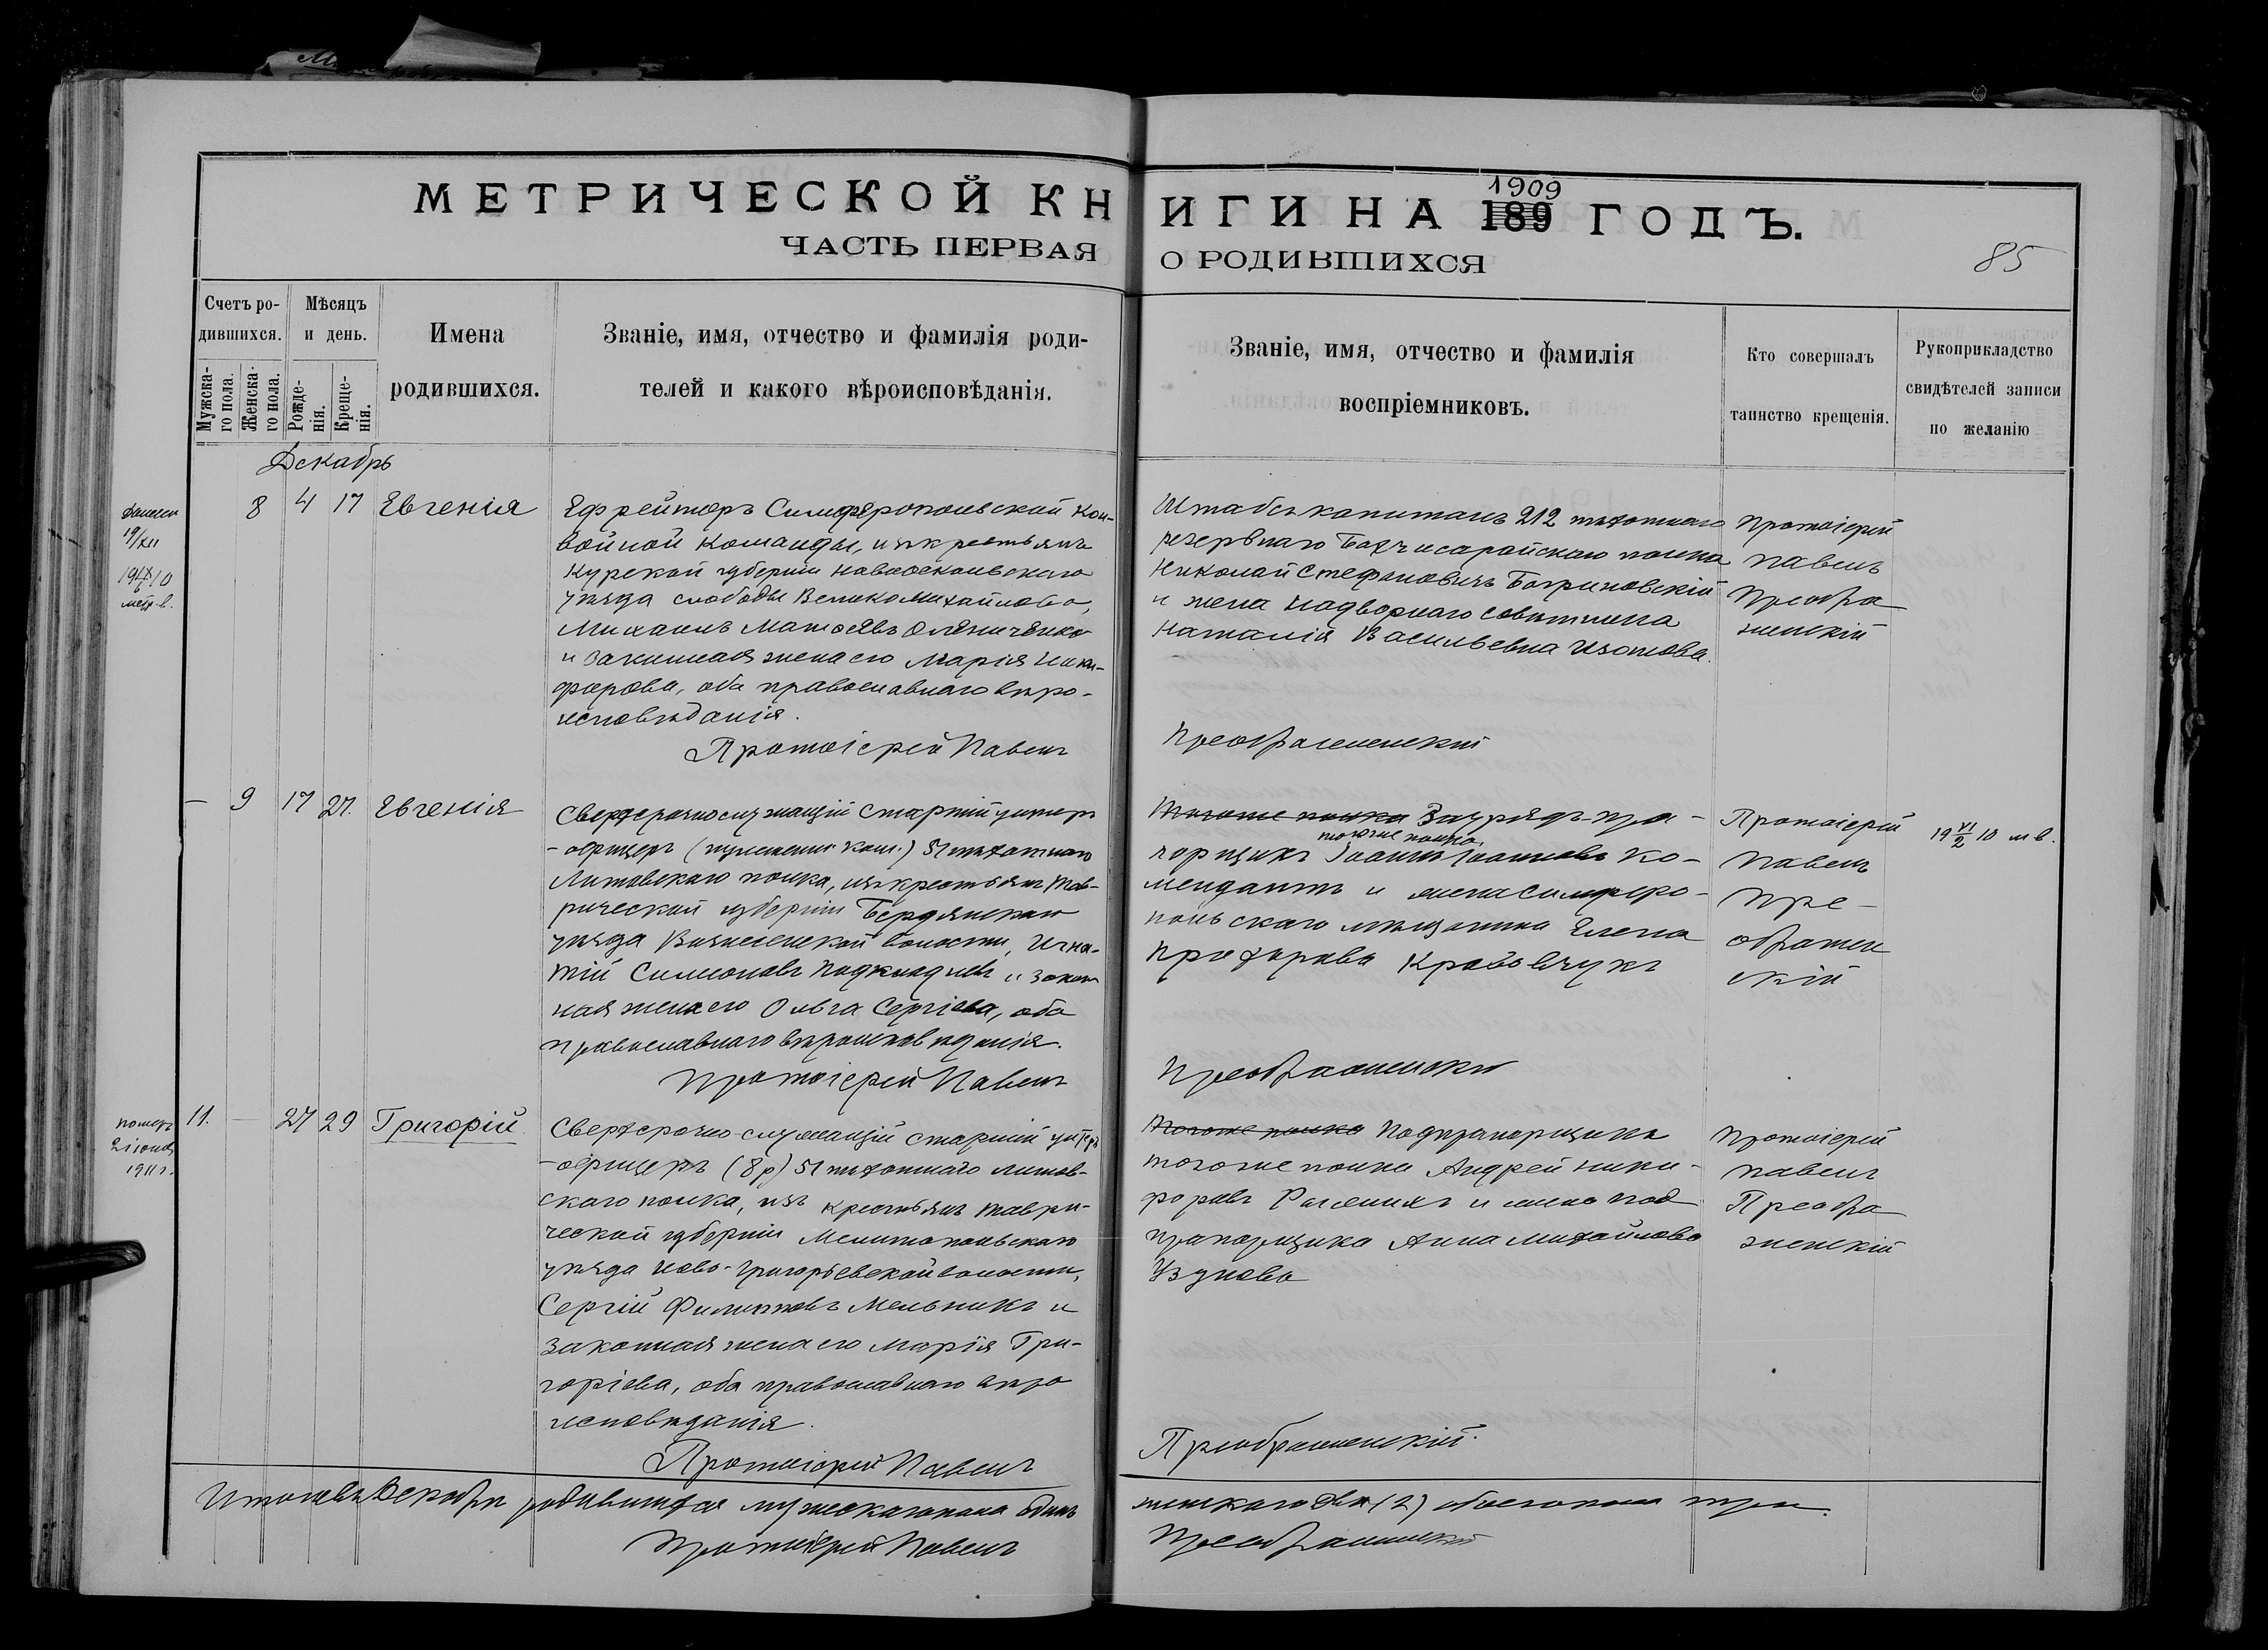 МЕТРИЧЕСКОЙ КНИГИ НА 189 ГОДЪ.
1909
ЧАСТЬ ПЕРВАЯ О РОДИВШИХСЯ
85
Счетъ ро-
дившихся.
Мужска-
го пола.
Женска-
го пола.
Мѣсяцъ
и день.
Рожде-
нія.
Креще-
нія.
Имена
родившихся.
Званіе, имя, отчество и фамилія роди-
телей и какого вѣроисповѣданія.
Званіе, имя, отчество и фамилія
воспріемниковъ.
Кто совершалъ
таинство крещенія.
Рукоприкладство
свидѣтелей записи
по желанію
Декабрь
19/XII
8 4 17 Евгенія
Ефрейторъ Симферопольской кон-
войной команды, изъ крестьянъ
Курской губерніи Новооскольскаго
уѣзда слободы Великомихайловки,
Михаилъ Матѳеевъ Олениченко
и законная жена его Марія Ники-
форова, оба православнаго вѣро-
исповѣданія.
Протоіерей Павелъ
Штабсъ капитанъ 212 пѣхотнаго
резервнаго Бахчисарайскаго полка
Николай Стефановичъ Багриновскій
и жена надворнаго совѣтника
Наталія Васильевна Изотова.
Преображенскій
Протоіерей
Павелъ
Преобра
женскій
— 9 17 27. Евгенія
Сверхсрочнослужащій старшій унтеръ
-офицеръ 51 пѣхотнаго
Литовскаго полка, изъ крестьянъ Тав-
рической губерніи Бердянскаго
уѣзда Вознесенской волости, Игна-
тій Симеоновъ Подкладневъ и закон
ная жена его Ольга Сергіева, оба
православнаго вѣроисповѣданія.
Протоіерей Павелъ
Тогоже полка Заурядъ пра-
тогоже полка
порщикъ Іоаннъ Іоанновъ Ко-
мендантъ и жена Симферо-
польскаго мѣщанина Елена
Прохорова Кравовчукъ
Преображенскій
Протоіерей
Павелъ
Пре-
ображен
скій
19 VI/2 10 м в.
померъ
2 іюня
1911 г.
11. — 27 29 Григорій
Сверхсрочно-служащій старшій унтеръ
-офицеръ (8 р) 51 пѣхотнаго Литов-
скаго полка, изъ крестьянъ Таври-
ческой губерніи Мелитопольскаго
уѣзда Ново-Григорьевской волости,
Сергій Филипповъ Мельникъ и
законная жена его Марія Гри-
горіева, оба православнаго вѣро
исповѣданія.
Протоіерей Павелъ
Тогоже полка Подпрапорщикъ
тогоже полка Андрей Ники-
форовъ и жена под
прапорщика Анна Михайлова
Узунова
Преображенскій.
Протоіерей
Павелъ
Преобра
женскій
Итого въ Декабрѣ родившихся мужескаго пола одинъ женскаго двѣ (2) обоего пола три.
Протоіерей Павелъ Преображенскій